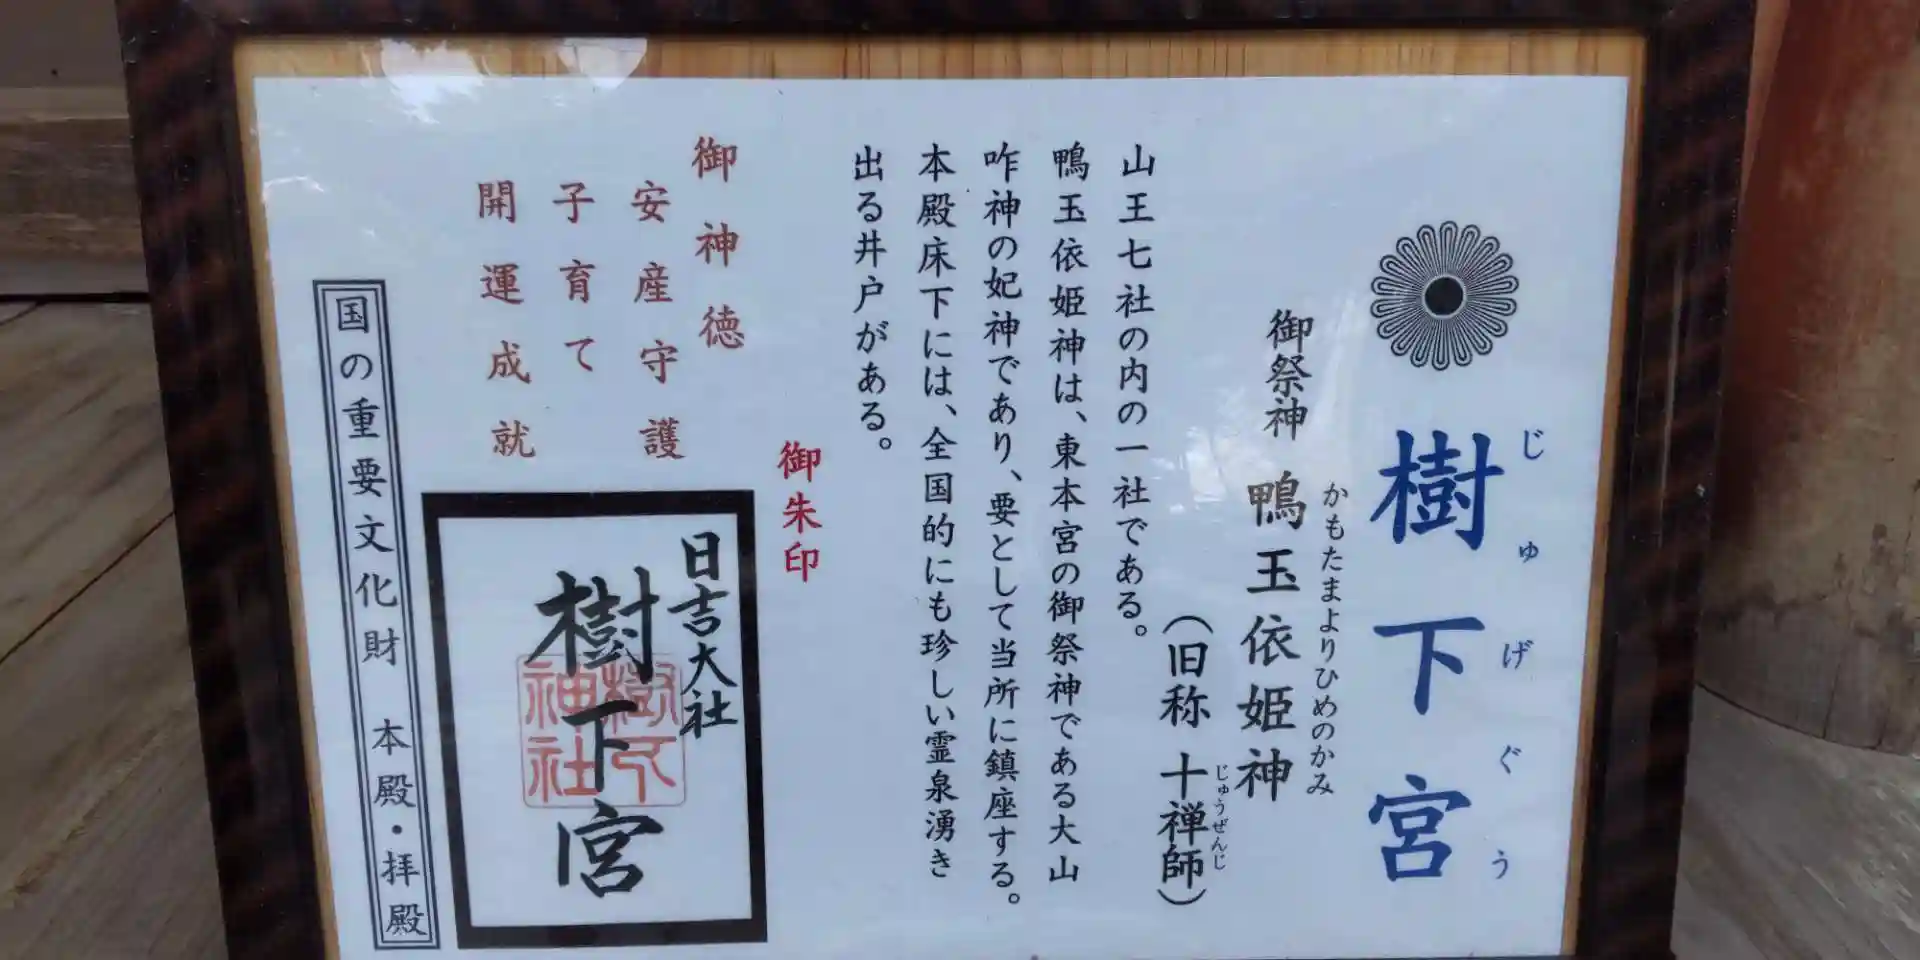 樹下宮
じゅげぐう
御祭神 鴨玉依姫神
かもたまよりひめのかみ
(旧称 十禅師)
じゅうぜんじ
山王七社の内の一社である。
鴨玉依姫神は、東本宮の御祭神である大山
咋神の妃神であり、要として当所に鎮座する。
本殿床下には、全国的にも珍しい霊泉湧き
出る井戸がある。
御朱印
日吉大社
樹下宮
樹下神社
御神徳
安産守護
子育て
開運成就
国の重要文化財 本殿・拝殿